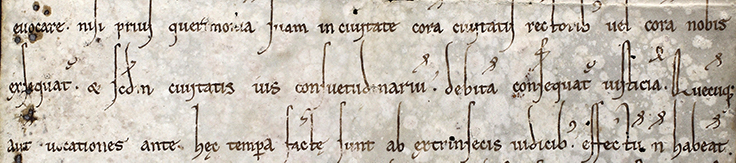 euocare. nisi prius querimonia suam in ciuitate cora ciuitatis rectorib; uel cora nobis
exsequat. & scd̄n ciuitatis ius consuetudinariu. debita consequat iusticia. Quecuq;
aut uocationes ante hęc tempa facte sunt ab extrinsecis iudicib; effectu n̄ habeat.